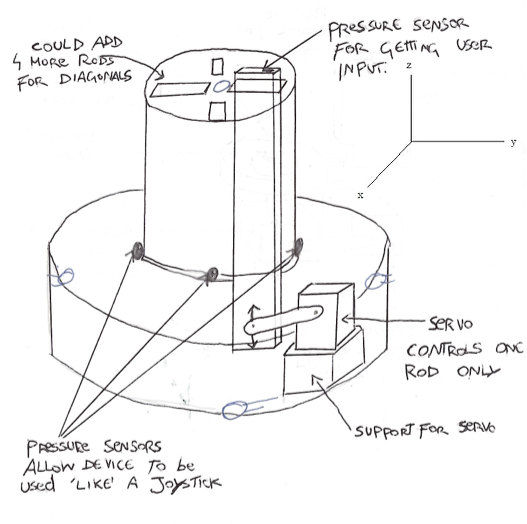 COULD ADD
4 MORE RODS
FOR DIAGONALS
PRESSURE SENSOR
FOR GETTING USER
INPUT.
z
y
x
SERVO
CONTROLS ONE
ROD ONLY
SUPPORT FOR SERVO
PRESSURE SENSORS
ALLOW DEVICE TO be
used 'LIKE' A JOYSTICK